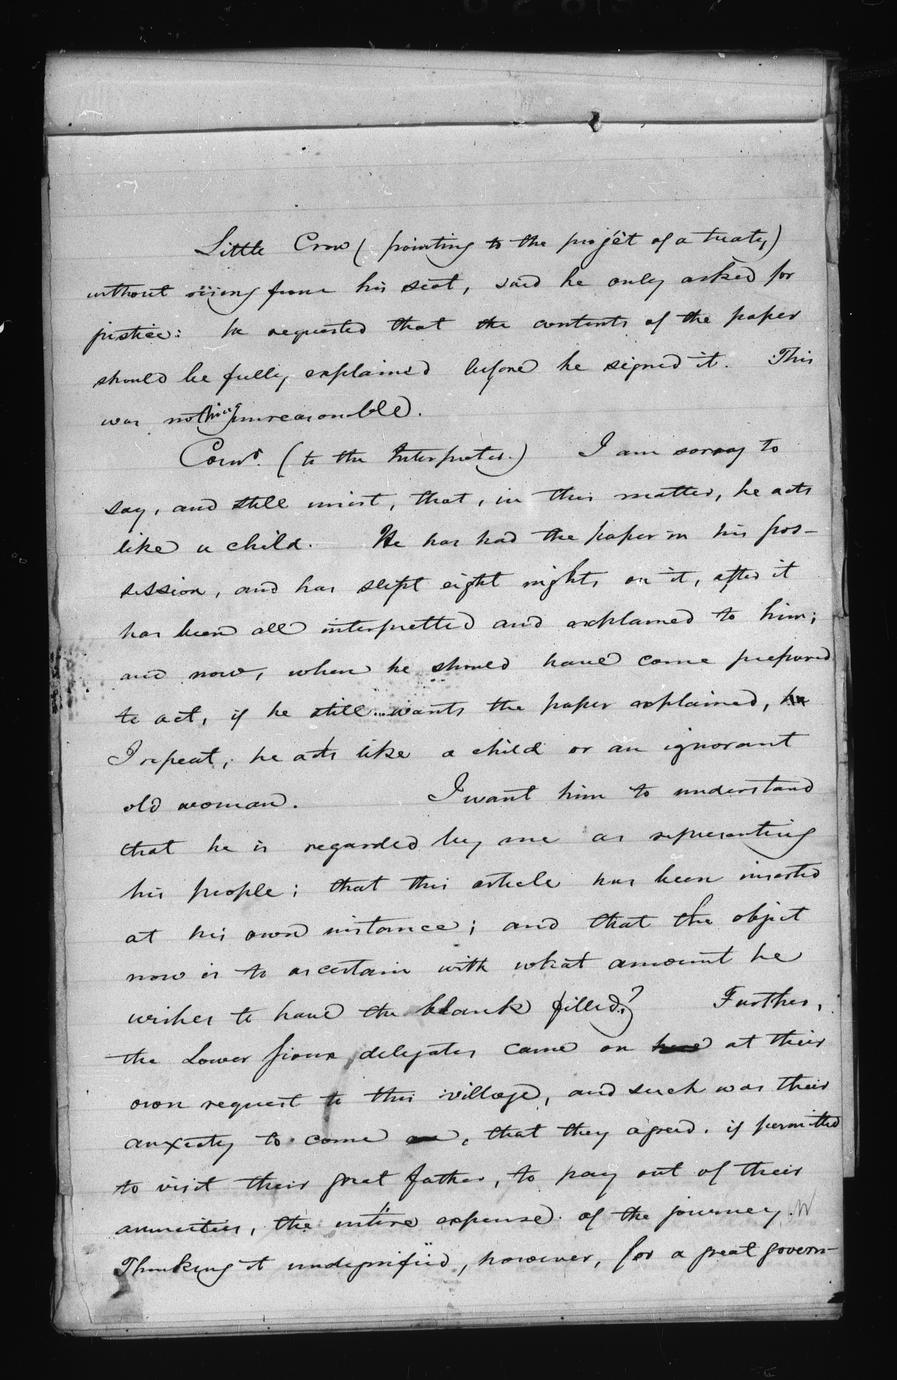 Little Crow (pointing to the projêt of a treaty)
without rising from his seat, said he only asked for
justice: he requested that the contents of the paper
should be fully explained before he signed it. This
was nothing unreasonable.
Comr. (to the Interpreter.) I am sorry to
say, and still insist, that, in this matter, he acts
like a child. He has had the paper in his pos-
session, and has slept eight nights on it, after it
has been all interpretted and explained to him;
and now, when he should have come prepared
to act, if he still wants the paper explained,
I repeat, he acts like a child or an ignorant
old woman. I want him to understand
that he is regarded by me as representing
his people; that this article has been inserted
at his own instance; and that the object
now is to ascertain with what amount he
wishes to have the blank filled? Further,
the Lower Sioux delegates came on here at their
own request to this village, and such was their
anxiety to come on, that they agreed, if permitted
to visit their great father, to pay out of their
annuities, the entire expense of the journey.
Thinking it undignified, however, for a great govern-